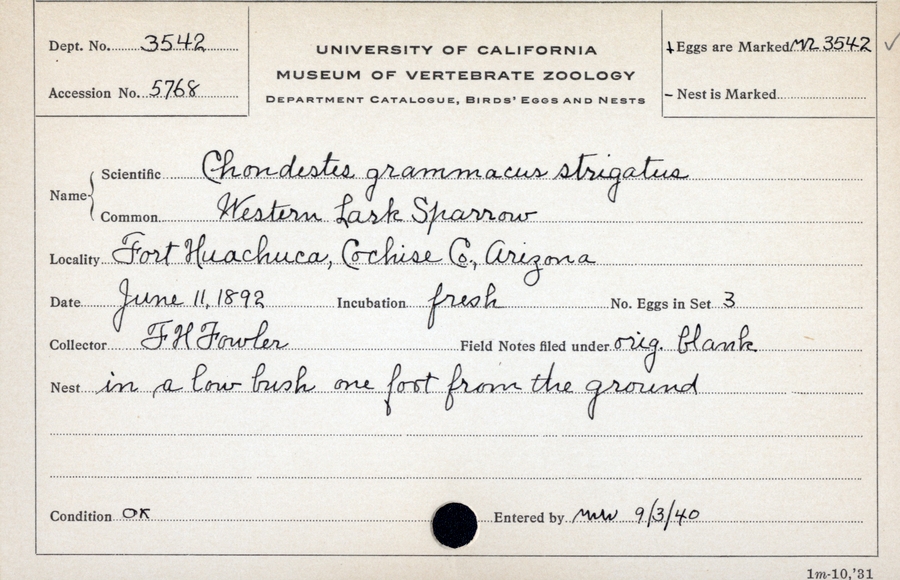 Dept. No. 3542
UNIVERSITY OF CALIFORNIA
MUSEUM OF VERTEBRATE ZOOLOGY
DEPARTMENT CATALOGUE, BIRDS' EGGS AND NESTS
Eggs are Marked 3542 ✓
Accession No. 5768
– Nest is Marked
Name { Scientific Chondestes grammacus strigatus
Common Western Lark Sparrow
Locality Fort Huachuca, Cochise Co., Arizona
Date June 11, 1892 Incubation fresh No. Eggs in Set 3
Collector F H Fowler Field Notes filed under orig. blank
Nest in a low bush one foot from the ground
Condition OK Entered by 9/3/40
1m-10,'31